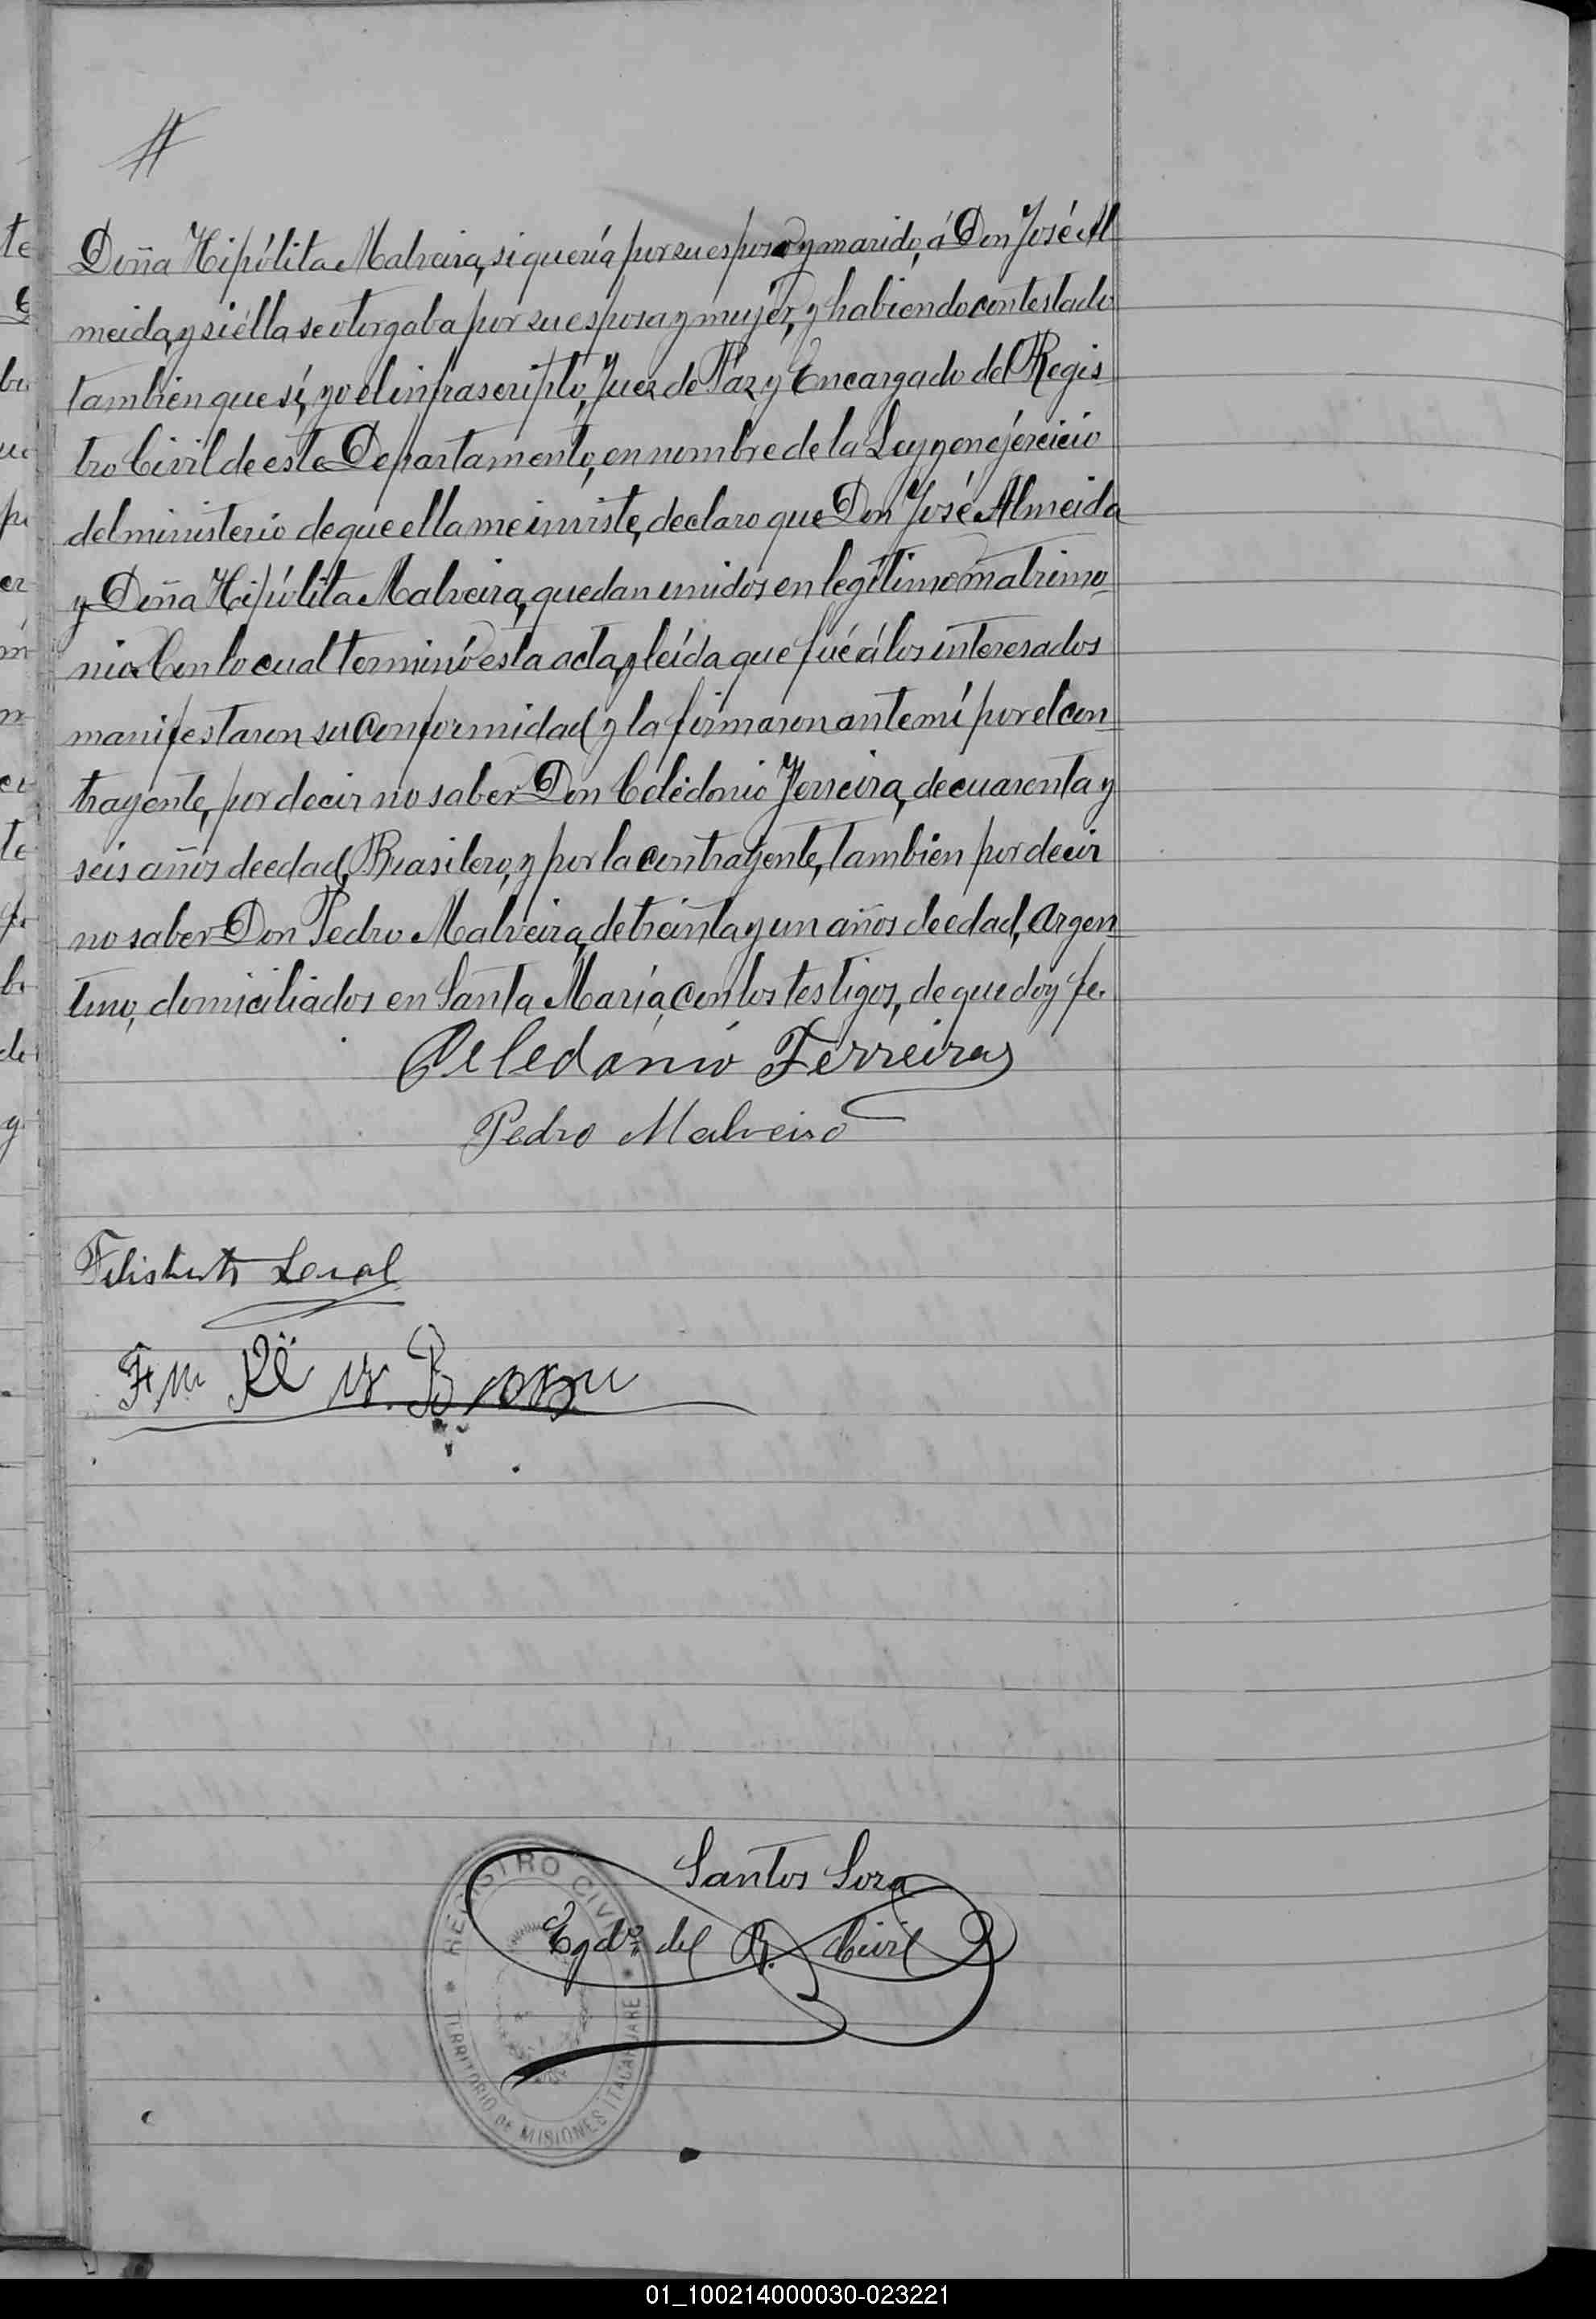 Doña Hipólita Malveira, si quería por su esposo y marido, á Don José Al
meida, y si élla se otorgaba por su esposa y mujer, y habiendo contestado
tambien que sí, yo el infrascripto, Juez de Paz y Encargado del Regis
tro Civil de este Departamento, en nombre de la Ley y en ejercicio
del ministerio de que ella me inviste, declaro que Don José Almeida
y Doña Hipólita Malveira, quedan unidos en legítimo matrimo-
nio. Con lo cual terminó esta acta, y leída que fué á los interesados
manifestaron su conformidad y la firmaron ante mí por el con-
trayente, por decir no saber Don Celedonio Ferreira, de cuarenta y
seis años de edad, Brasilero, y por la contrayente, tambien por decir
no saber Don Pedro Malveira, de treinta y un años de edad, Argen-
tino, domiciliados en Santa María, con los testigos, de que doy fe.
Celedonio Ferreira
Pedro Malveira
Leal
Santos Sosa
Egdo. del R. Civil
REGISTRO CIVIL
TERRITORIO DE MISIONES ITACARUARE
01_100214000030-023221